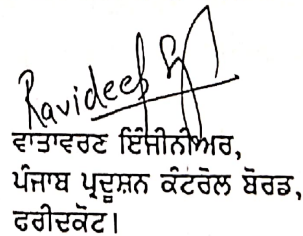 Ravideep
ਵਾਤਾਵਰਣ ਇੰਜੀਨੀਅਰ,
ਪੰਜਾਬ ਪ੍ਰਦੂਸ਼ਨ ਕੰਟਰੋਲ ਬੋਰਡ,
ਫਰੀਦਕੋਟ।